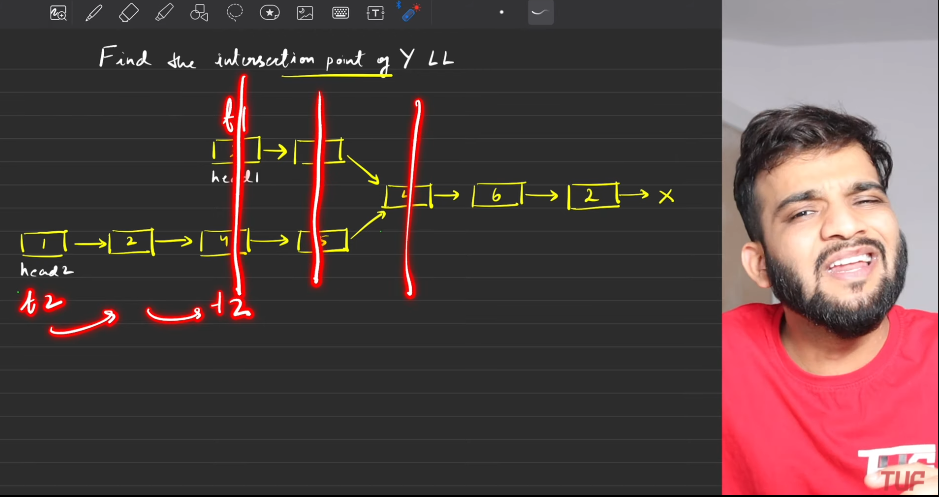 Find the intersection point of Y LL
t1
head1
4 6 2 X
1 2 4 5
head2
t2 t2
TUF